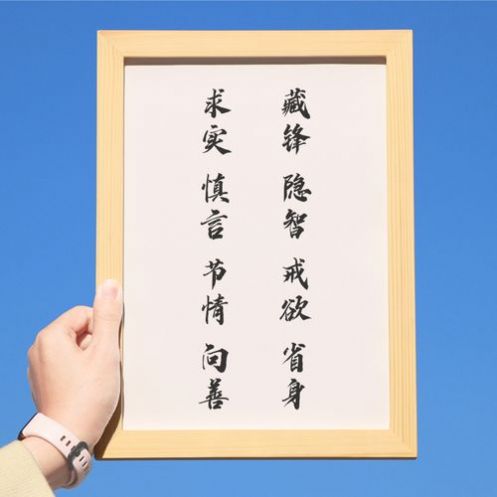 藏锋 隐智 戒欲 省身
求实 慎言 节情 向善